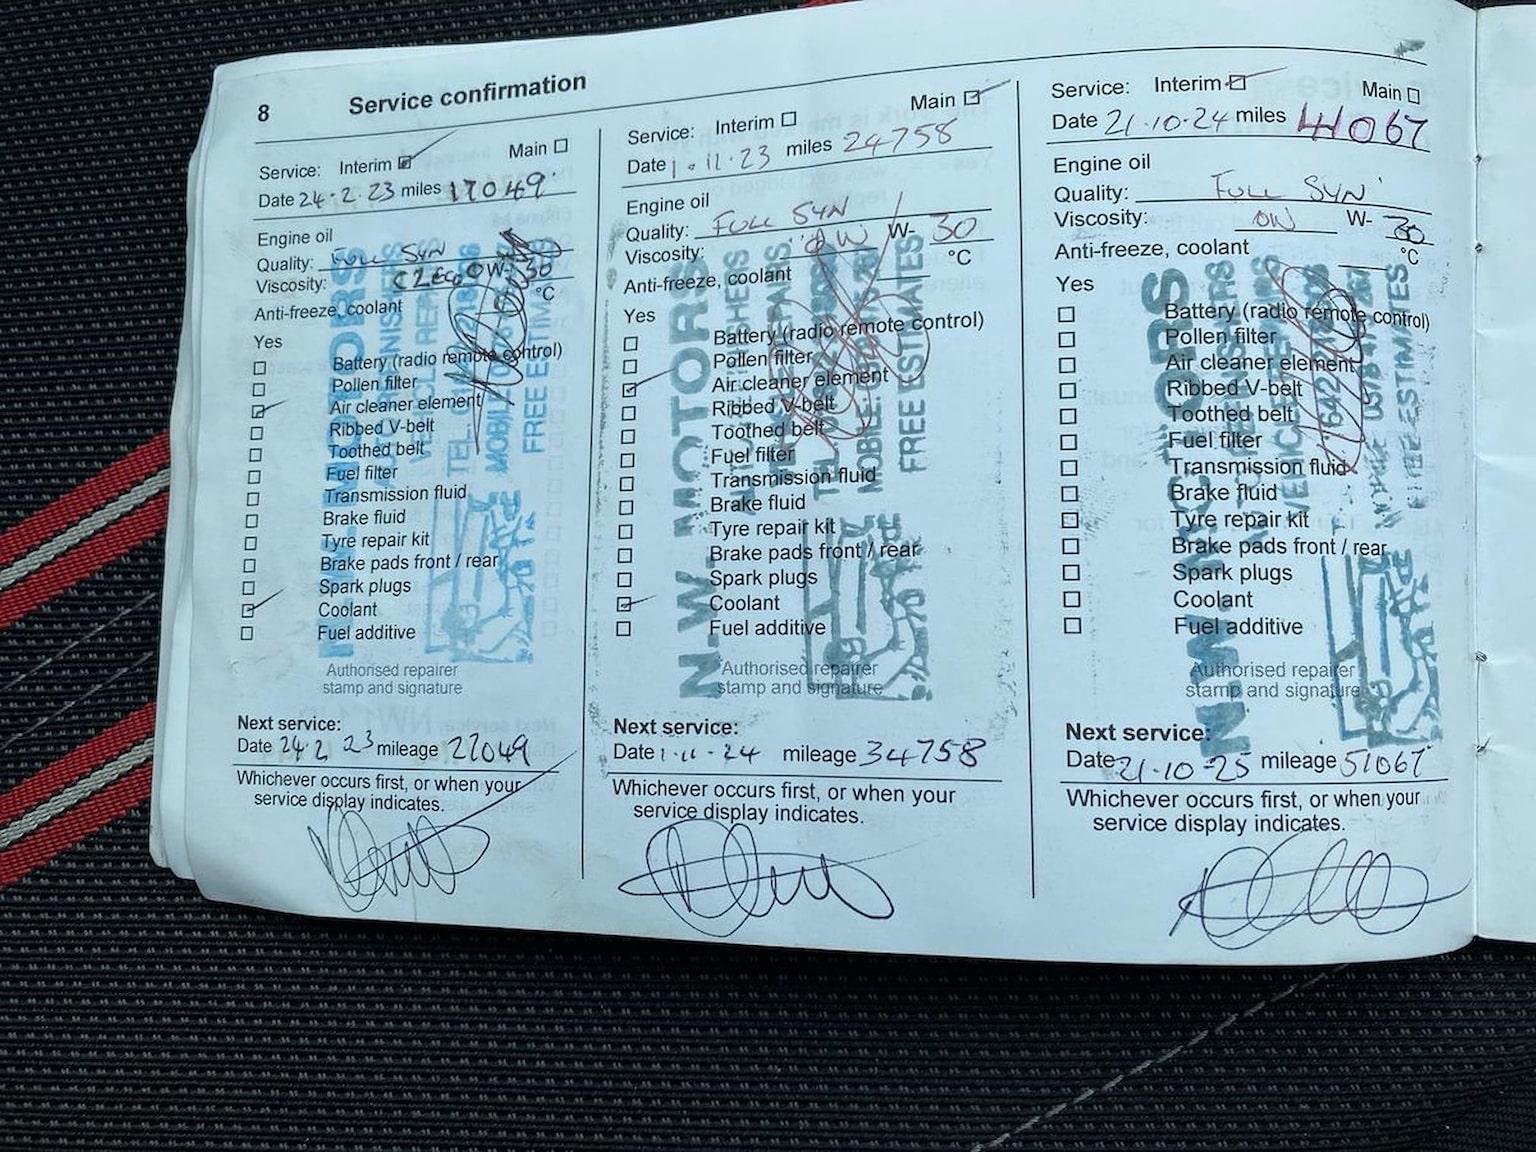 8 Service confirmation
Service: Interim Main
Date 24.2.23 miles 17049
Engine oil
Quality: FULL SYN
Viscosity: C2 Eco 0W W- 30
Anti-freeze, coolant °C
Yes
Battery (radio remote control)
Pollen filter
Air cleaner element
Ribbed V-belt
Toothed belt
Fuel filter
Transmission fluid
Brake fluid
Tyre repair kit
Brake pads front / rear
Spark plugs
Coolant
Fuel additive
Authorised repairer
stamp and signature
MOTORS
TEL.
FREE ESTIMATES
Next service:
Date 24.2 23 mileage 27049
Whichever occurs first, or when your
service display indicates.
Service: Interim Main
Date 1.11.23 miles 24758
Engine oil
Quality: FULL SYN
Viscosity: 0W W- 30
Anti-freeze, coolant °C
Yes
Battery (radio remote control)
Pollen filter
Air cleaner element
Ribbed V-belt
Toothed belt
Fuel filter
Transmission fluid
Brake fluid
Tyre repair kit
Brake pads front / rear
Spark plugs
Coolant
Fuel additive
Authorised repairer
stamp and signature
N.W. MOTORS
FREE ESTIMATES
Next service:
Date 1.11.24 mileage 34758
Whichever occurs first, or when your
service display indicates.
Service: Interim Main
Date 21.10.24 miles 41067
Engine oil
Quality: FULL SYN
Viscosity: 0W W- 30
Anti-freeze, coolant °C
Yes
Battery (radio remote control)
Pollen filter
Air cleaner element
Ribbed V-belt
Toothed belt
Fuel filter
Transmission fluid
Brake fluid
Tyre repair kit
Brake pads front / rear
Spark plugs
Coolant
Fuel additive
Authorised repairer
stamp and signature
N.W. MOTORS
FREE ESTIMATES
Next service:
Date 21.10.25 mileage 51067
Whichever occurs first, or when your
service display indicates.